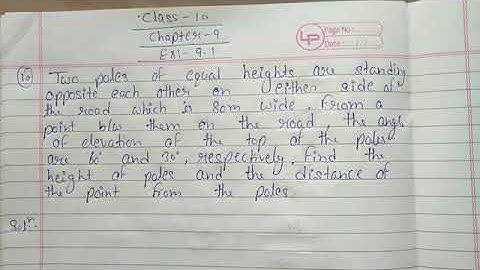 Class - 10
Chapter - 9
Ex:- 9.1
LP Page No:
Date: / /
10 Two poles of equal heights are standing
opposite each other on either side of
the road which is 80m wide. From a
point b/w them on the road, the angle
of elevation of the top of the poles
are 60° and 30°, respectively, find the
height of poles and the distance of
the point from the poles
Solⁿ:-